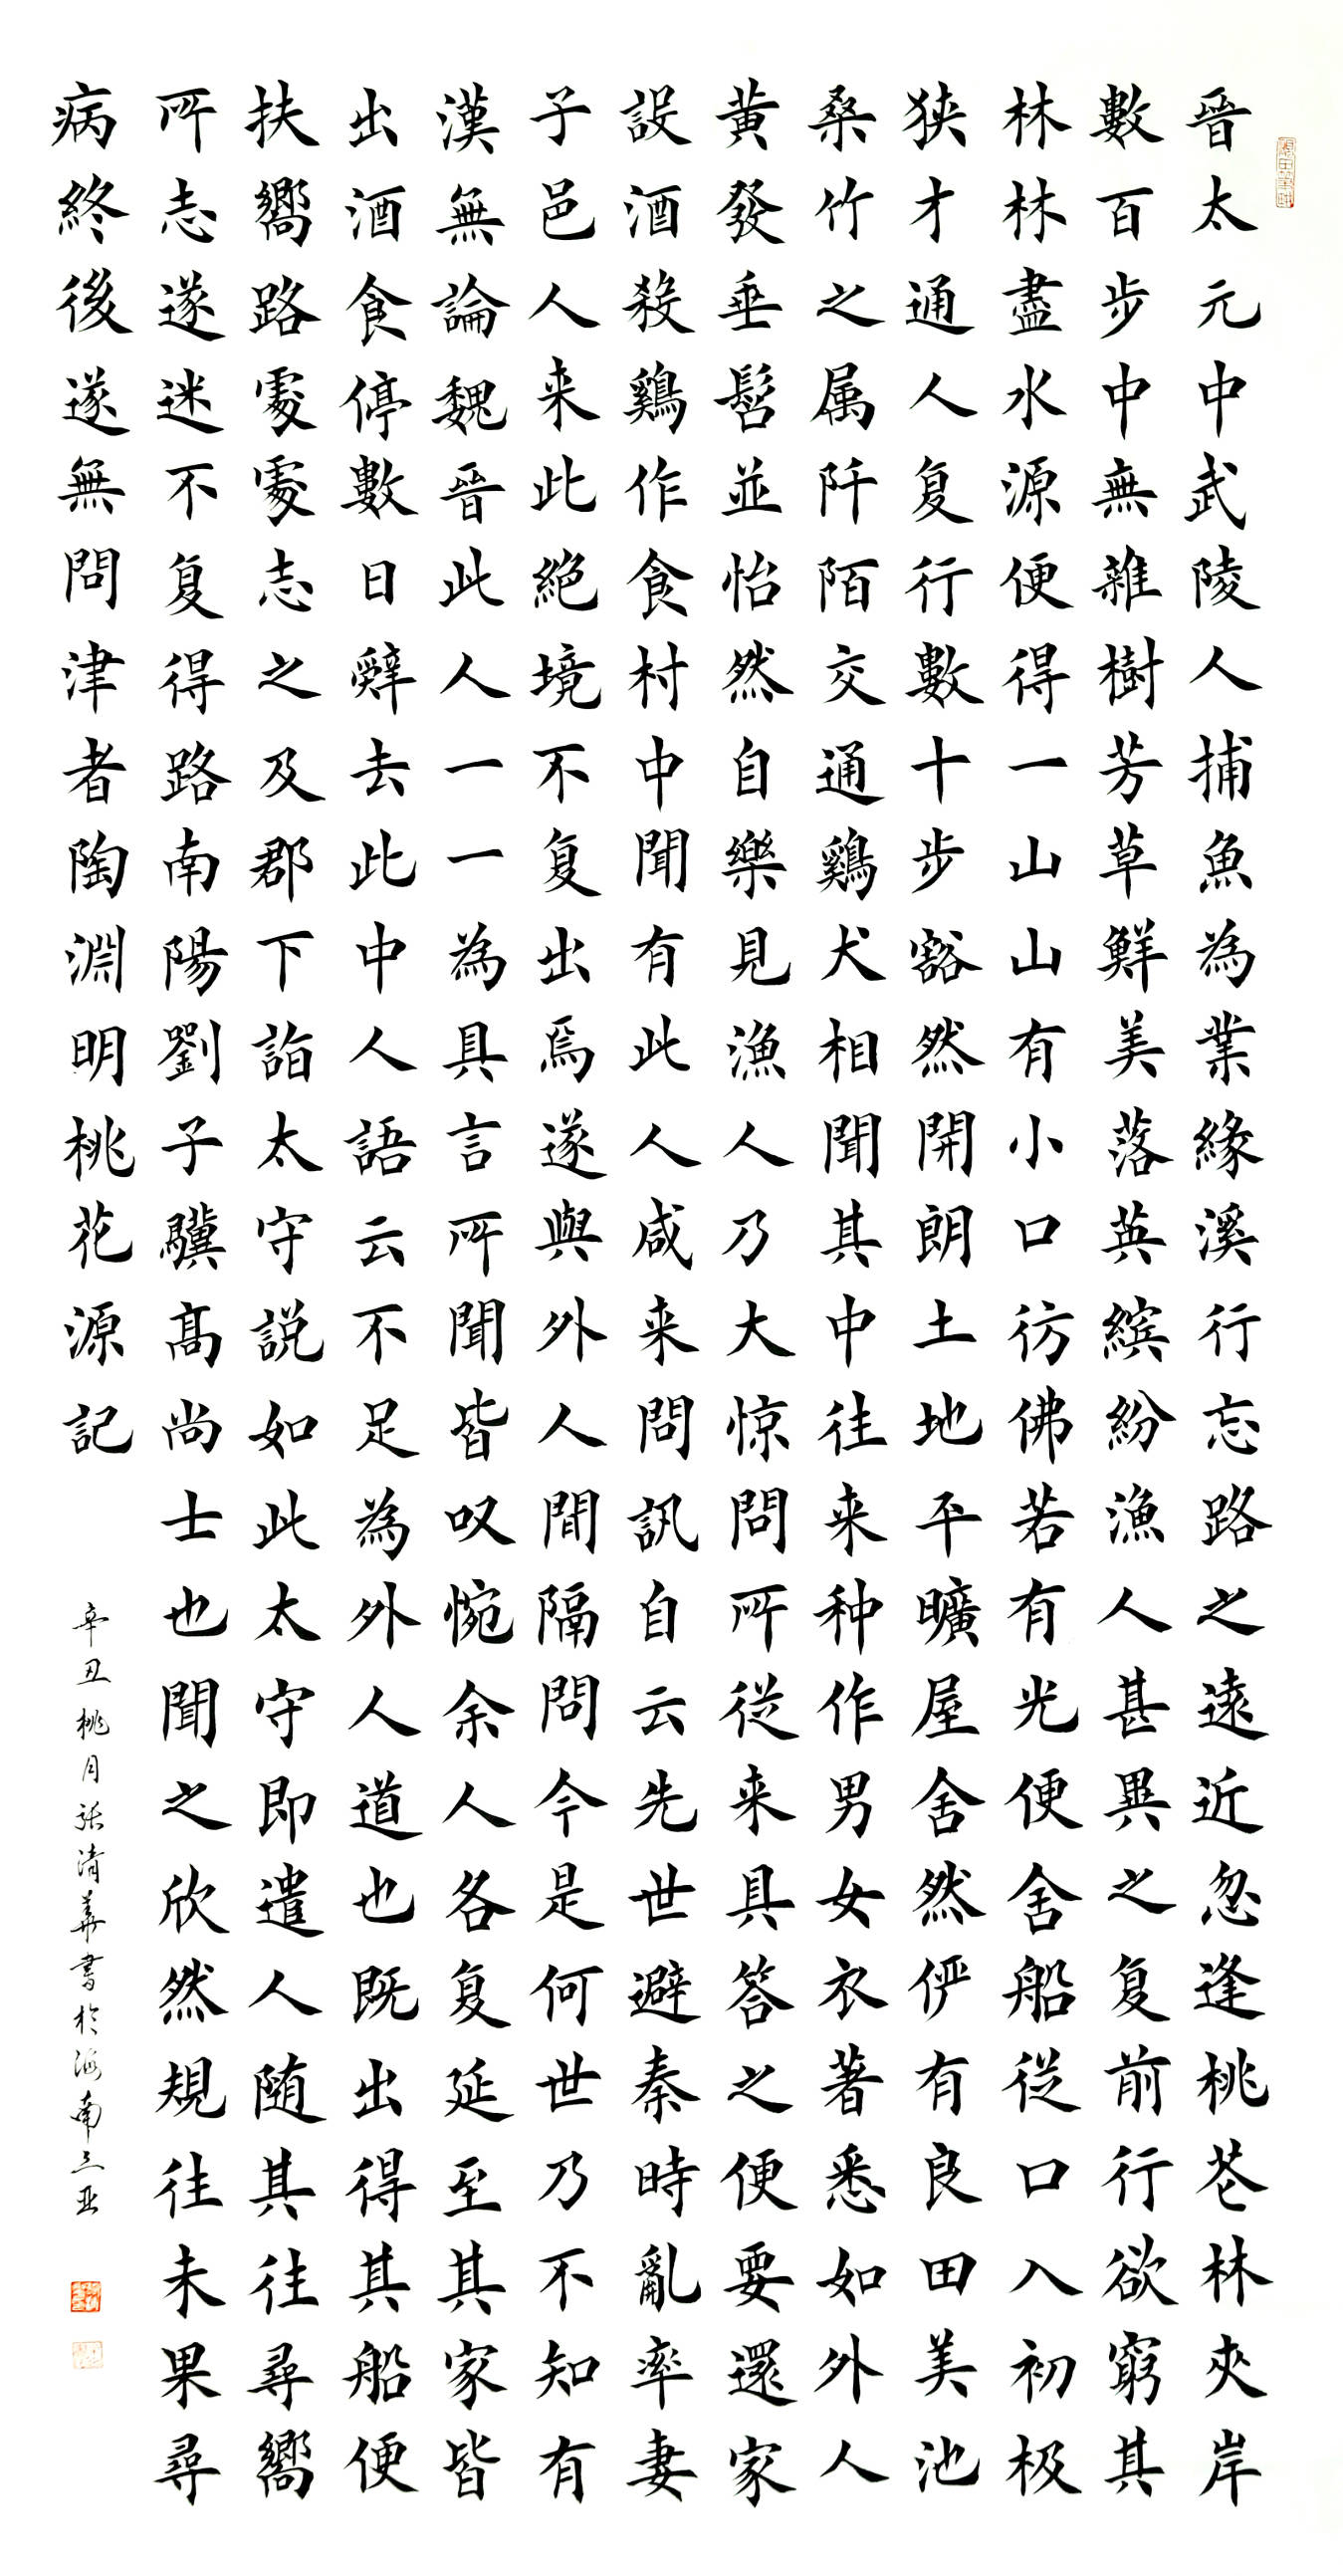 晉太元中武陵人捕魚為業緣溪行忘路之遠近忽逢桃花林夾岸
數百步中無雜樹芳草鮮美落英繽紛漁人甚異之复前行欲窮其
林林盡水源便得一山山有小口彷佛若有光便舍船從口入初极
狹才通人复行數十步豁然開朗土地平曠屋舍然俨有良田美池
桑竹之属阡陌交通鷄犬相聞其中往来种作男女衣著悉如外人
黄發垂髫並怡然自樂見漁人乃大惊問所從来具答之便要還家
設酒殺鷄作食村中聞有此人咸来問訊自云先世避秦時亂率妻
子邑人来此絕境不复出焉遂與外人間隔問今是何世乃不知有
漢無論魏晉此人一一為具言所聞皆叹惋余人各复延至其家皆
出酒食停數日辭去此中人語云不足為外人道也既出得其船便
扶嚮路處處志之及郡下詣太守説如此太守即遣人随其往尋嚮
所志遂迷不复得路南陽劉子驥髙尚士也聞之欣然規往未果尋
病終後遂無問津者陶淵明桃花源記
辛丑桃月張清華書於海南三亚